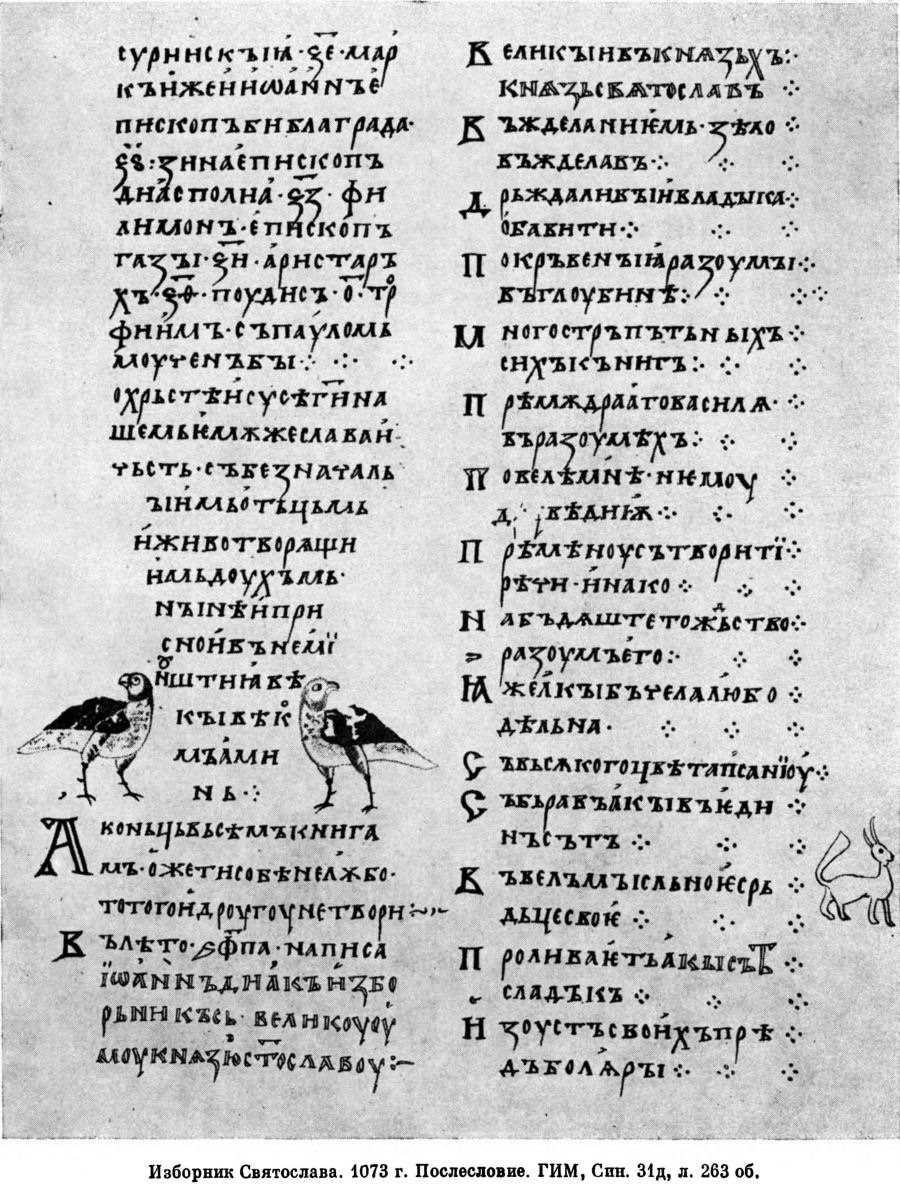 сурнискꙑꙗ · з҃е · мар
къ иже и иѡаннъ е
пископъ виблаграда·
з҃ѕ : зина епископъ
диасполиа · з҃з · фи
лимонъ · епископъ
газꙑ · з҃и · аристар
хъ · з҃ѳ · поудисъ · о҃ · тр
фимъ · съ пауломь
моученъ бꙑ
о хрьстѣ исусѣ г҃и на
шемь имьже слава и
чьсть · съ безначаль
ꙑимь отьцьмь
и животворящи
имь доухъмь·
нꙑнѣ и при
сно и въ немї
и штиꙗ вѣ
кꙑ вѣк
мъ ами
нь ·
А коньць вьсѣмъ книга
мъ · оже ти собѣ нелюбо·
то того и дроугоу не твори
Въ лѣто · ҂ѕфпа · написа
їѡаннъ диакъ избо
рьникъ сь · великоуоу
моу кнѧзю ст҃ославоу
Великꙑи въ кнѧзьхъ
кнѧзь свѧтославъ
Въжделаниѥмь · зѣло
въжделавъ
Дрьжаливꙑи владꙑка
обавити
Покръвенꙑꙗ разоумꙑ
въ глоубинѣ
Многостръпътьнꙑхъ
сихъ кънигъ
Прѣмѫдрааго василѧ ·
въ разоумѣхъ
Повелѣ мнѣ · немоу
д вѣдиѭ
Прѣмѣноу сътворити ї
рѣчи · инако
Набъдѧште тождьство
разоумъ его
Ꙗже акꙑ бъчела любо
дѣльна ·
Съ вьсѧкого цвѣта псаниюу
Събьравъ акꙑ въ ѥди
нъ сътъ
Въ вельмꙑсльноѥ срь
дьце своѥ
Проливаѥть акꙑ сътъ
сладъкъ
Из оустъ своихъ прѣ
дъ болꙗрꙑ
Изборник Святослава. 1073 г. Послесловие. ГИМ, Син. 31д, л. 263 об.